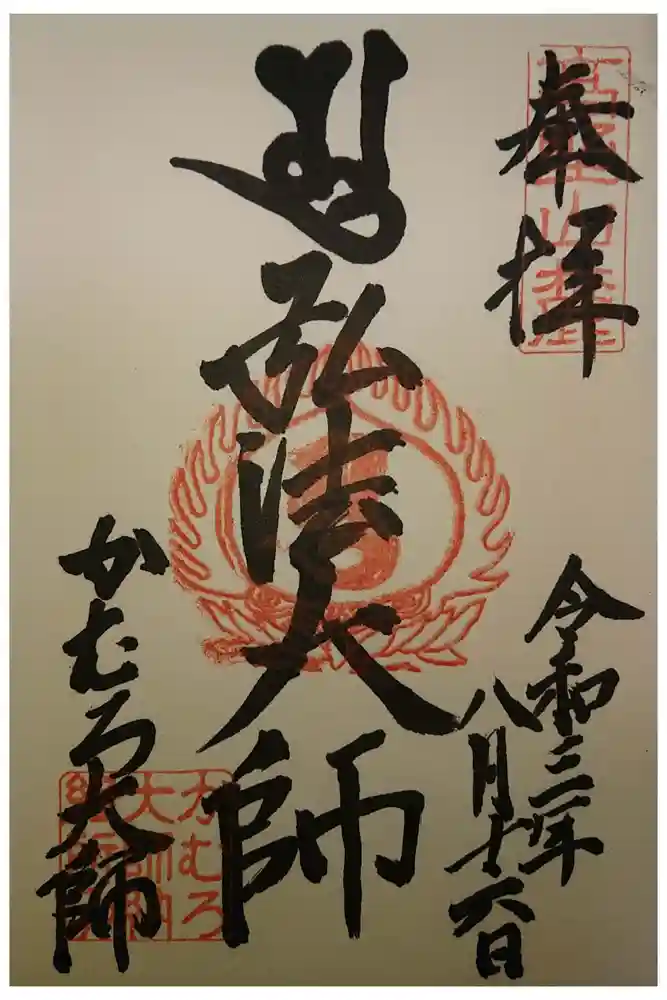 奉拝
高野山麓
令和三年
八月十六日
弘法大師
かむろ大師
かむろ
大師